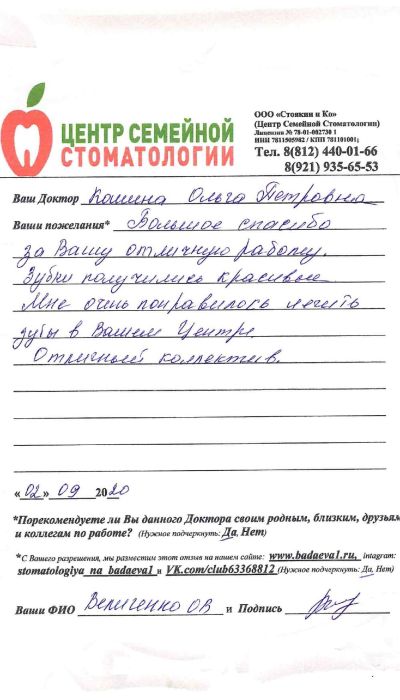 ЦЕНТР СЕМЕЙНОЙ
СТОМАТОЛОГИИ
ООО «Стоякин и Ко»
(Центр Семейной Стоматологии)
Лицензия № 78-01-002730 1
ИНН 7811505982 / КПП 781101001;
Тел. 8(812) 440-01-66
8(921) 935-65-53
Ваш Доктор Кошина Ольга Петровна
Ваши пожелания* Большое спасибо
за Вашу отличную работу.
Зубки получились красивые
Мне очень понравилось лечить
зубы в Вашем Центре.
Отличный коллектив.
«02» 09 2020
*Порекомендуете ли Вы данного Доктора своим родным, близким, друзьям
и коллегам по работе? (Нужное подчеркнуть: Да, Нет)
*С Вашего разрешения, мы разместим этот отзыв на нашем сайте: www.badaeva1.ru, intagram:
stomatologiya_na_badaeva1 и VK.com/club63368812 (Нужное подчеркнуть: Да, Нет)
Ваши ФИО Величенко ОВ и Подпись